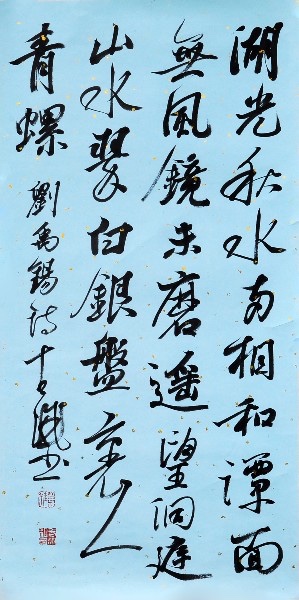 湖光秋水两相和潭面
無風鏡未磨遥望洞庭
山水翠白銀盤裏
青螺
劉禹錫詩